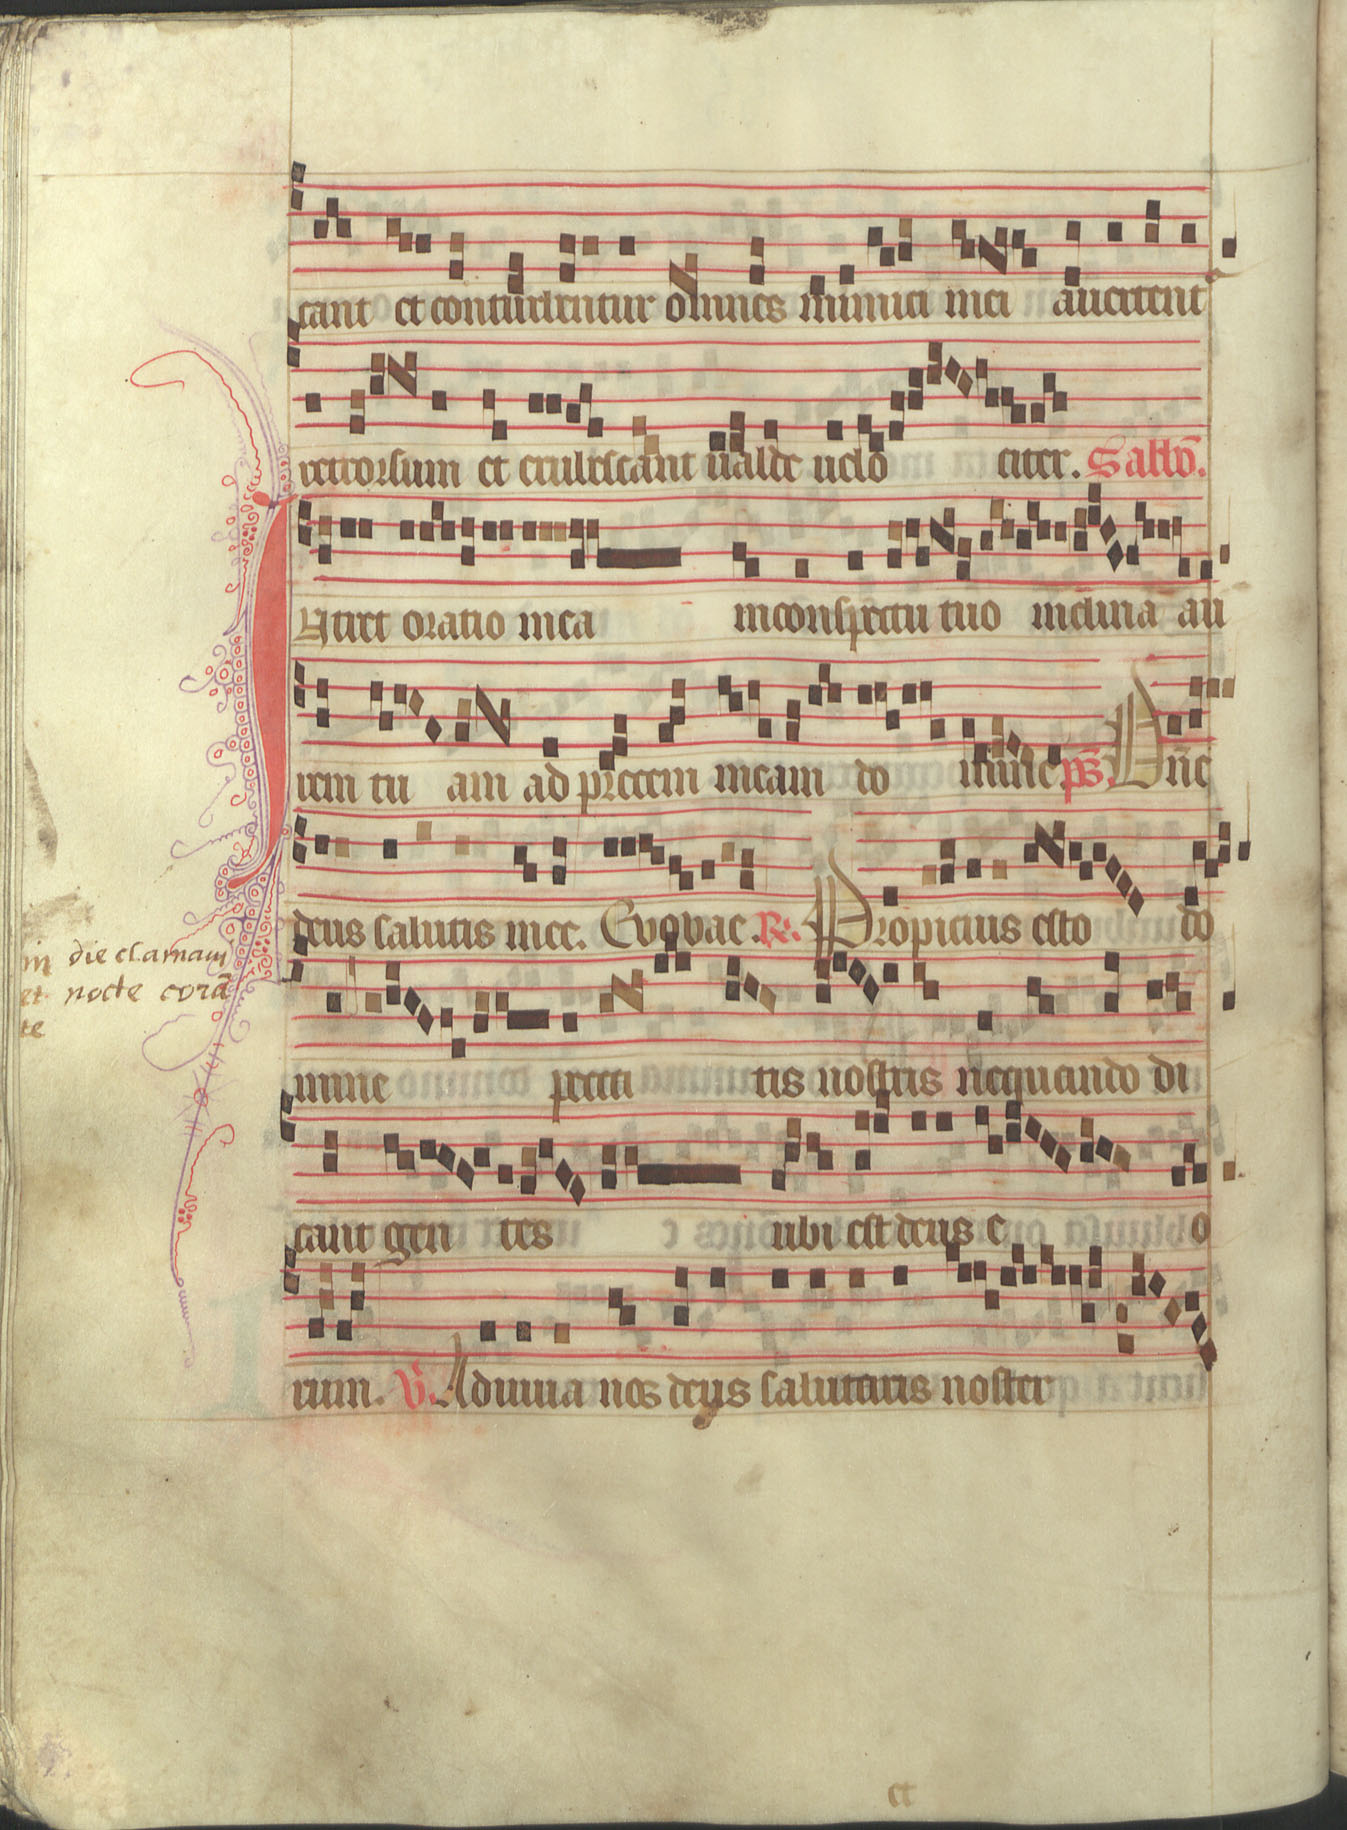 cant et conturbentur omnes inimici mei auertent
retrorsum et erubescant ualde uelo citer. Sabbō.
Intret oratio mea inconspectu tuo inclina au
rem tu am ad precem meam do mine ps. Dn̄e
deus salutis mee. Euouae. R. Propicius esto do
in die clamaui
et nocte corā
te
mine pecca tis nostris nequando di
cant gen tes ubi est deus e o
rum. V. Adiuua nos deus salutaris noster
et